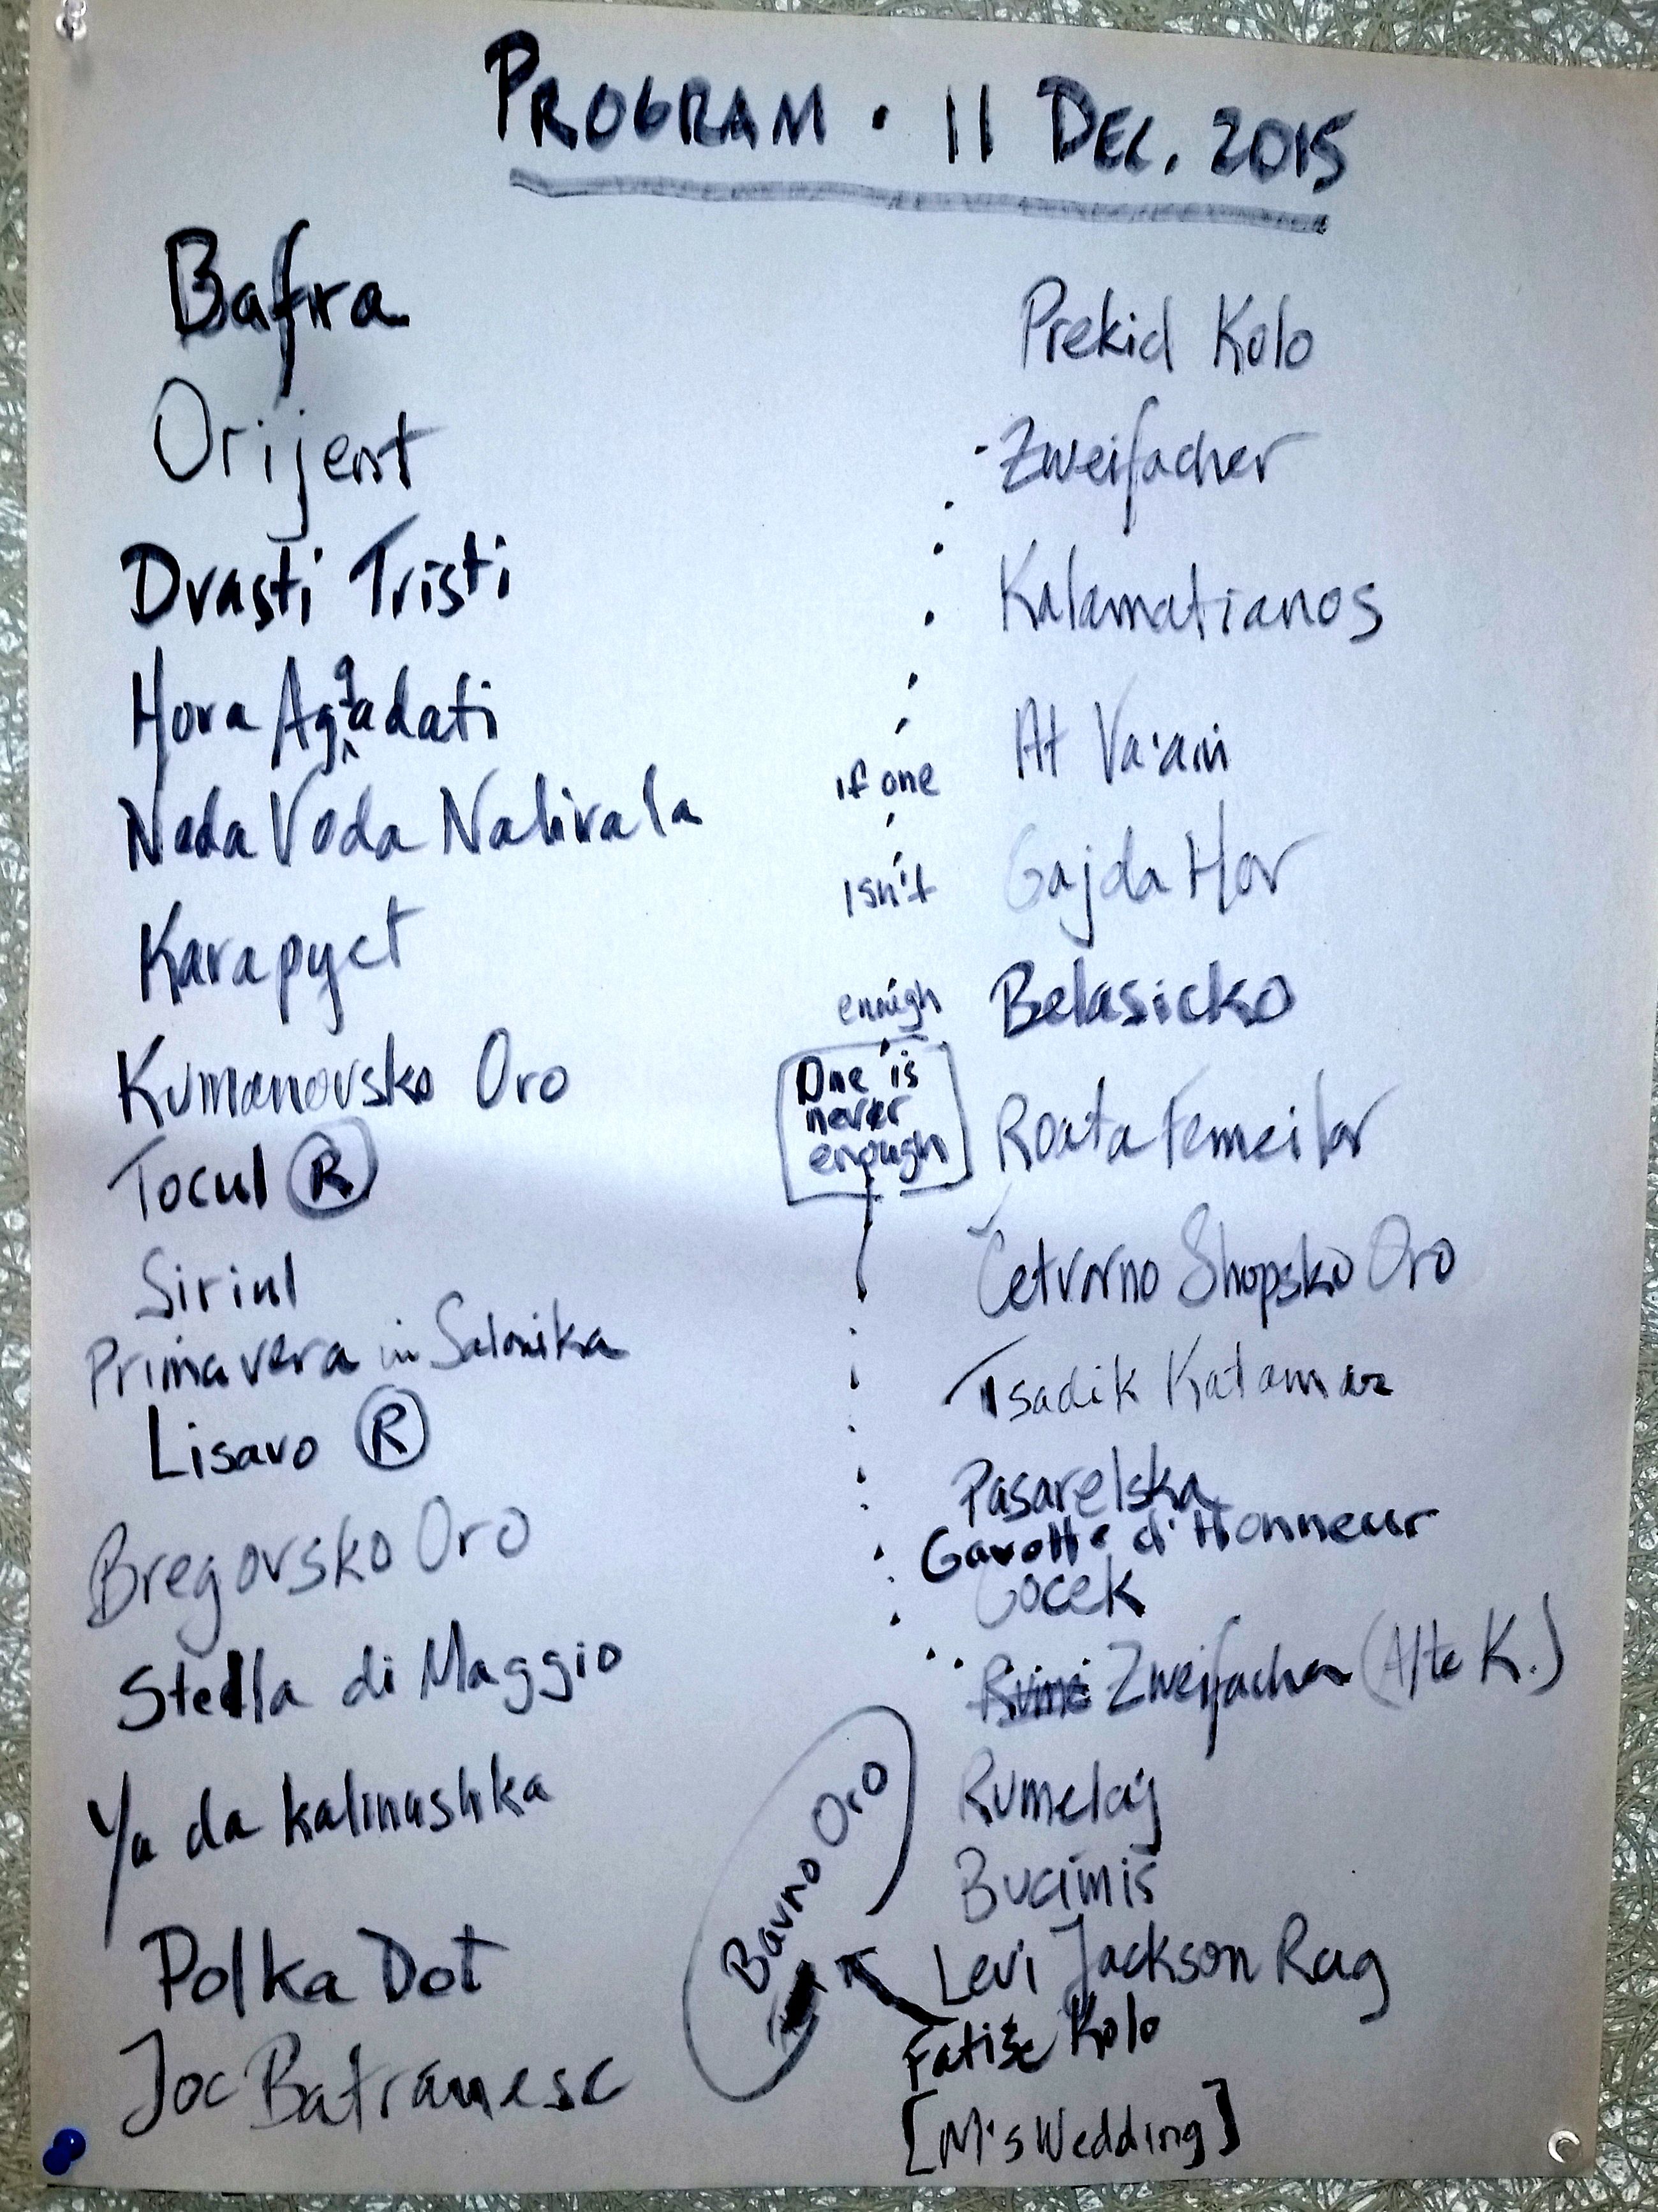 PROGRAM · 11 DEC. 2015
Bafra
Orijent
Drasti Tristi
Hora Agadati
Nada Voda Nalivala
Karapyet
Kumanovsko Oro
Tocul Ⓡ
Siriul
Primavera in Salonika
Lisavo Ⓡ
Bregovsko Oro
Stella di Maggio
Ya da kalinushka
Polka Dot
Joc Batranesc
if one
isn't
enough
One is
never
enough
Bavno Oro
Prekid Kolo
Zweifacher
Kalamatianos
At Va'ani
Gajda Hor
Belasicko
Roata Femeilor
Četvorno Shopsko Oro
Tsadik Katamar
Pasarelska
Gavotte d'Honneur
Cocek
Zweifacher (Alte K.)
Rumelaj
Bucimis
Levi Jackson Rag
Fatiše Kolo
[M's Wedding]